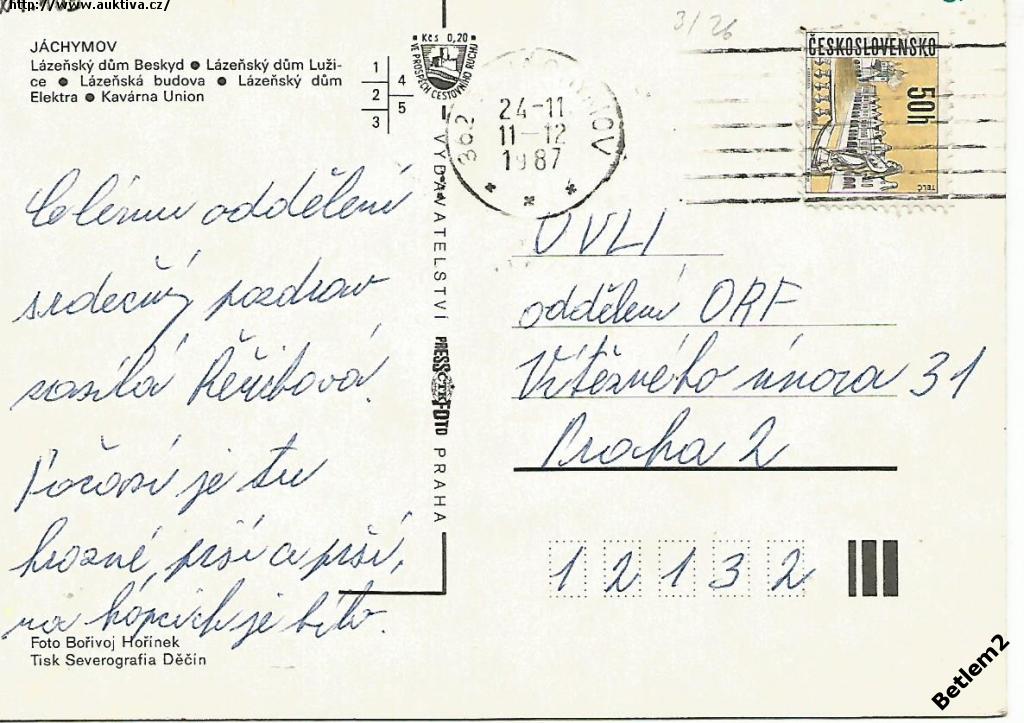 http://www.auktiva.cz/
JÁCHYMOV
Lázeňský dům Beskyd ● Lázeňský dům Luži-
ce ● Lázeňská budova ● Lázeňský dům
Elektra ● Kavárna Union
1
2
3
4
5
Kčs 0,20
VE PROSPĚCH CESTOVNÍHO RUCHU
362
24-11
11-12
1987
3/26
ČESKOSLOVENSKO
50h
TELČ
Celému oddělení
srdečný pozdrav
zasílá
Počasí je tu
hrozné, prší a prší,
na kopcích je bílo.
VYDAVATELSTVÍ PRESSFOTO PRAHA
ČTK
ÚVLI
oddělení ORF
Vítězného února 31
Praha 2
12132
Foto Bořivoj Hořínek
Tisk Severografia Děčín
Betlem2